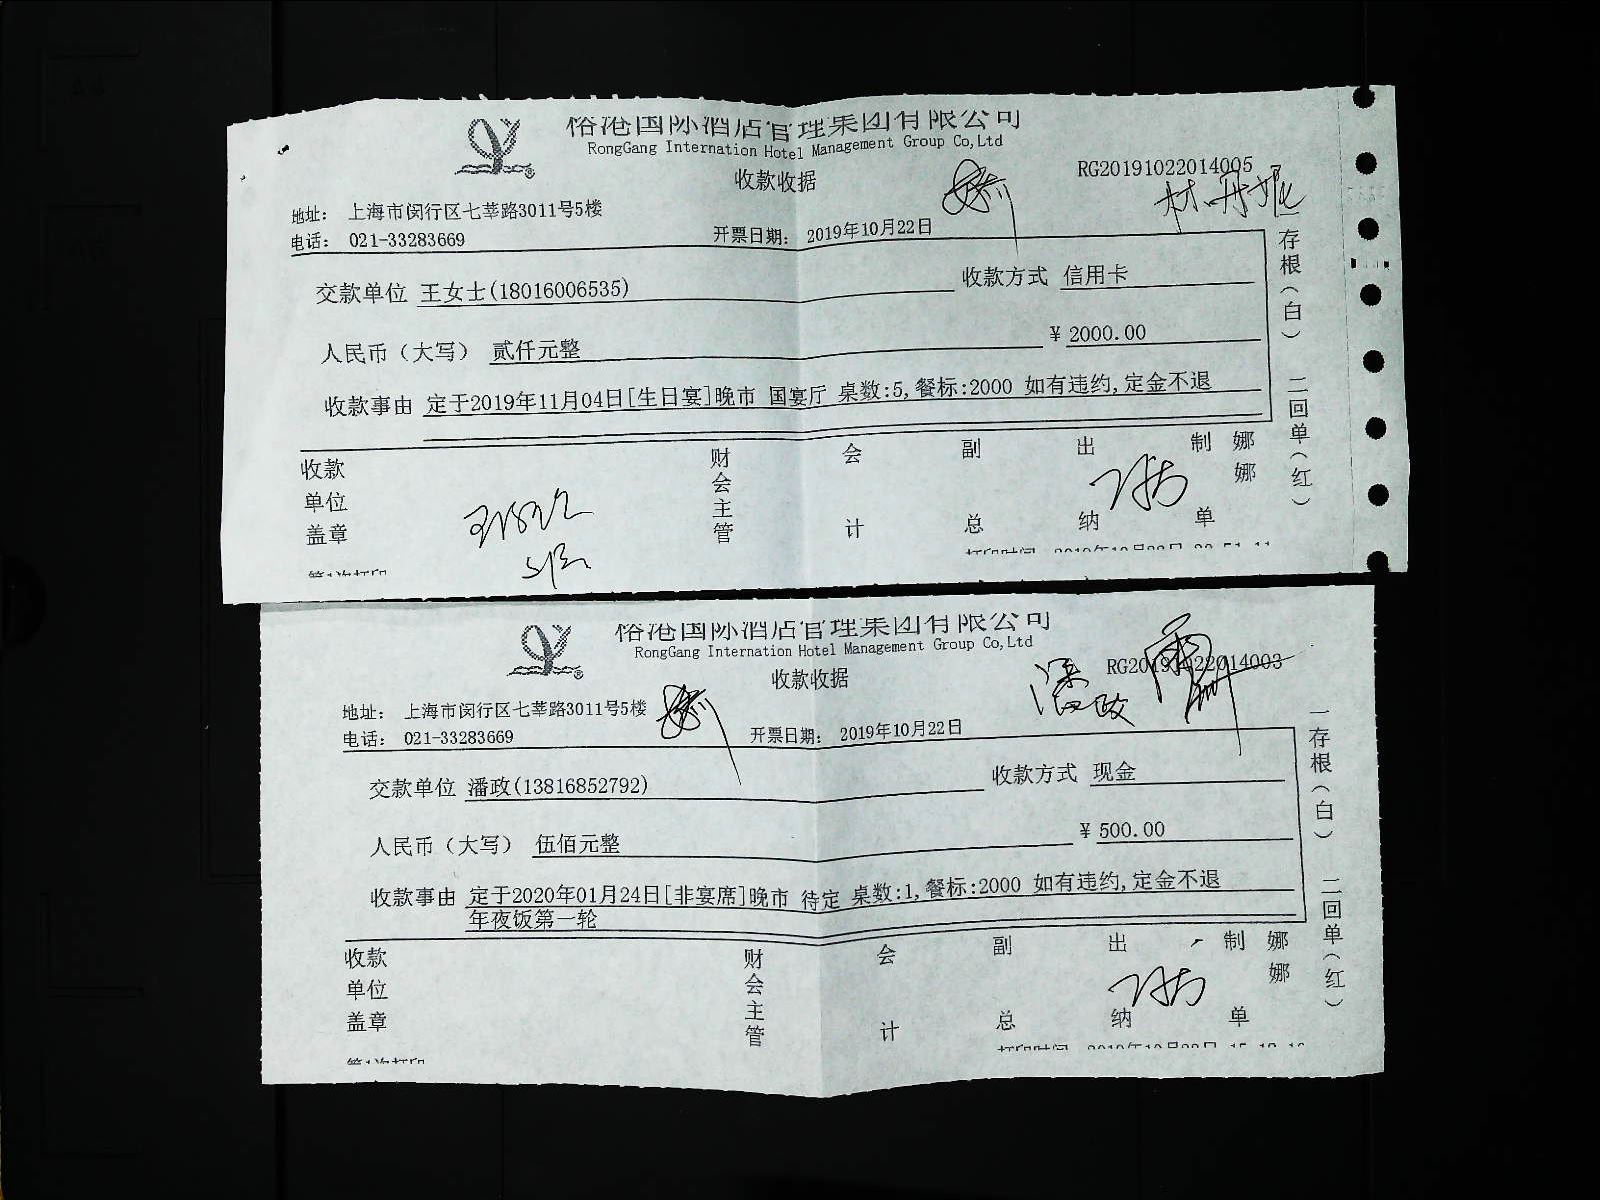 裕港国际酒店管理集团有限公司
RongGang Internation Hotel Management Group Co,Ltd
收款收据
RG20191022014005
林丹妮
地址： 上海市闵行区七莘路3011号5楼
电话： 021-33283669
开票日期： 2019年10月22日
交款单位 王女士(18016006535)
收款方式 信用卡
人民币（大写） 贰仟元整
¥ 2000.00
收款事由 定于2019年11月04日[生日宴]晚市 国宴厅 桌数:5,餐标:2000 如有违约,定金不退
一存根（白） 二回单（红）
收款单位盖章
财会主管
会计
副总
出纳
制单
娜娜
第1次打印
裕港国际酒店管理集团有限公司
RongGang Internation Hotel Management Group Co,Ltd
收款收据
RG20191022014003
潘政
地址： 上海市闵行区七莘路3011号5楼
电话： 021-33283669
开票日期： 2019年10月22日
交款单位 潘政(13816852792)
收款方式 现金
人民币（大写） 伍佰元整
¥ 500.00
收款事由 定于2020年01月24日[非宴席]晚市 待定 桌数:1,餐标:2000 如有违约,定金不退
年夜饭第一轮
一存根（白） 二回单（红）
收款单位盖章
财会主管
会计
副总
出纳
制单
娜娜
第1次打印